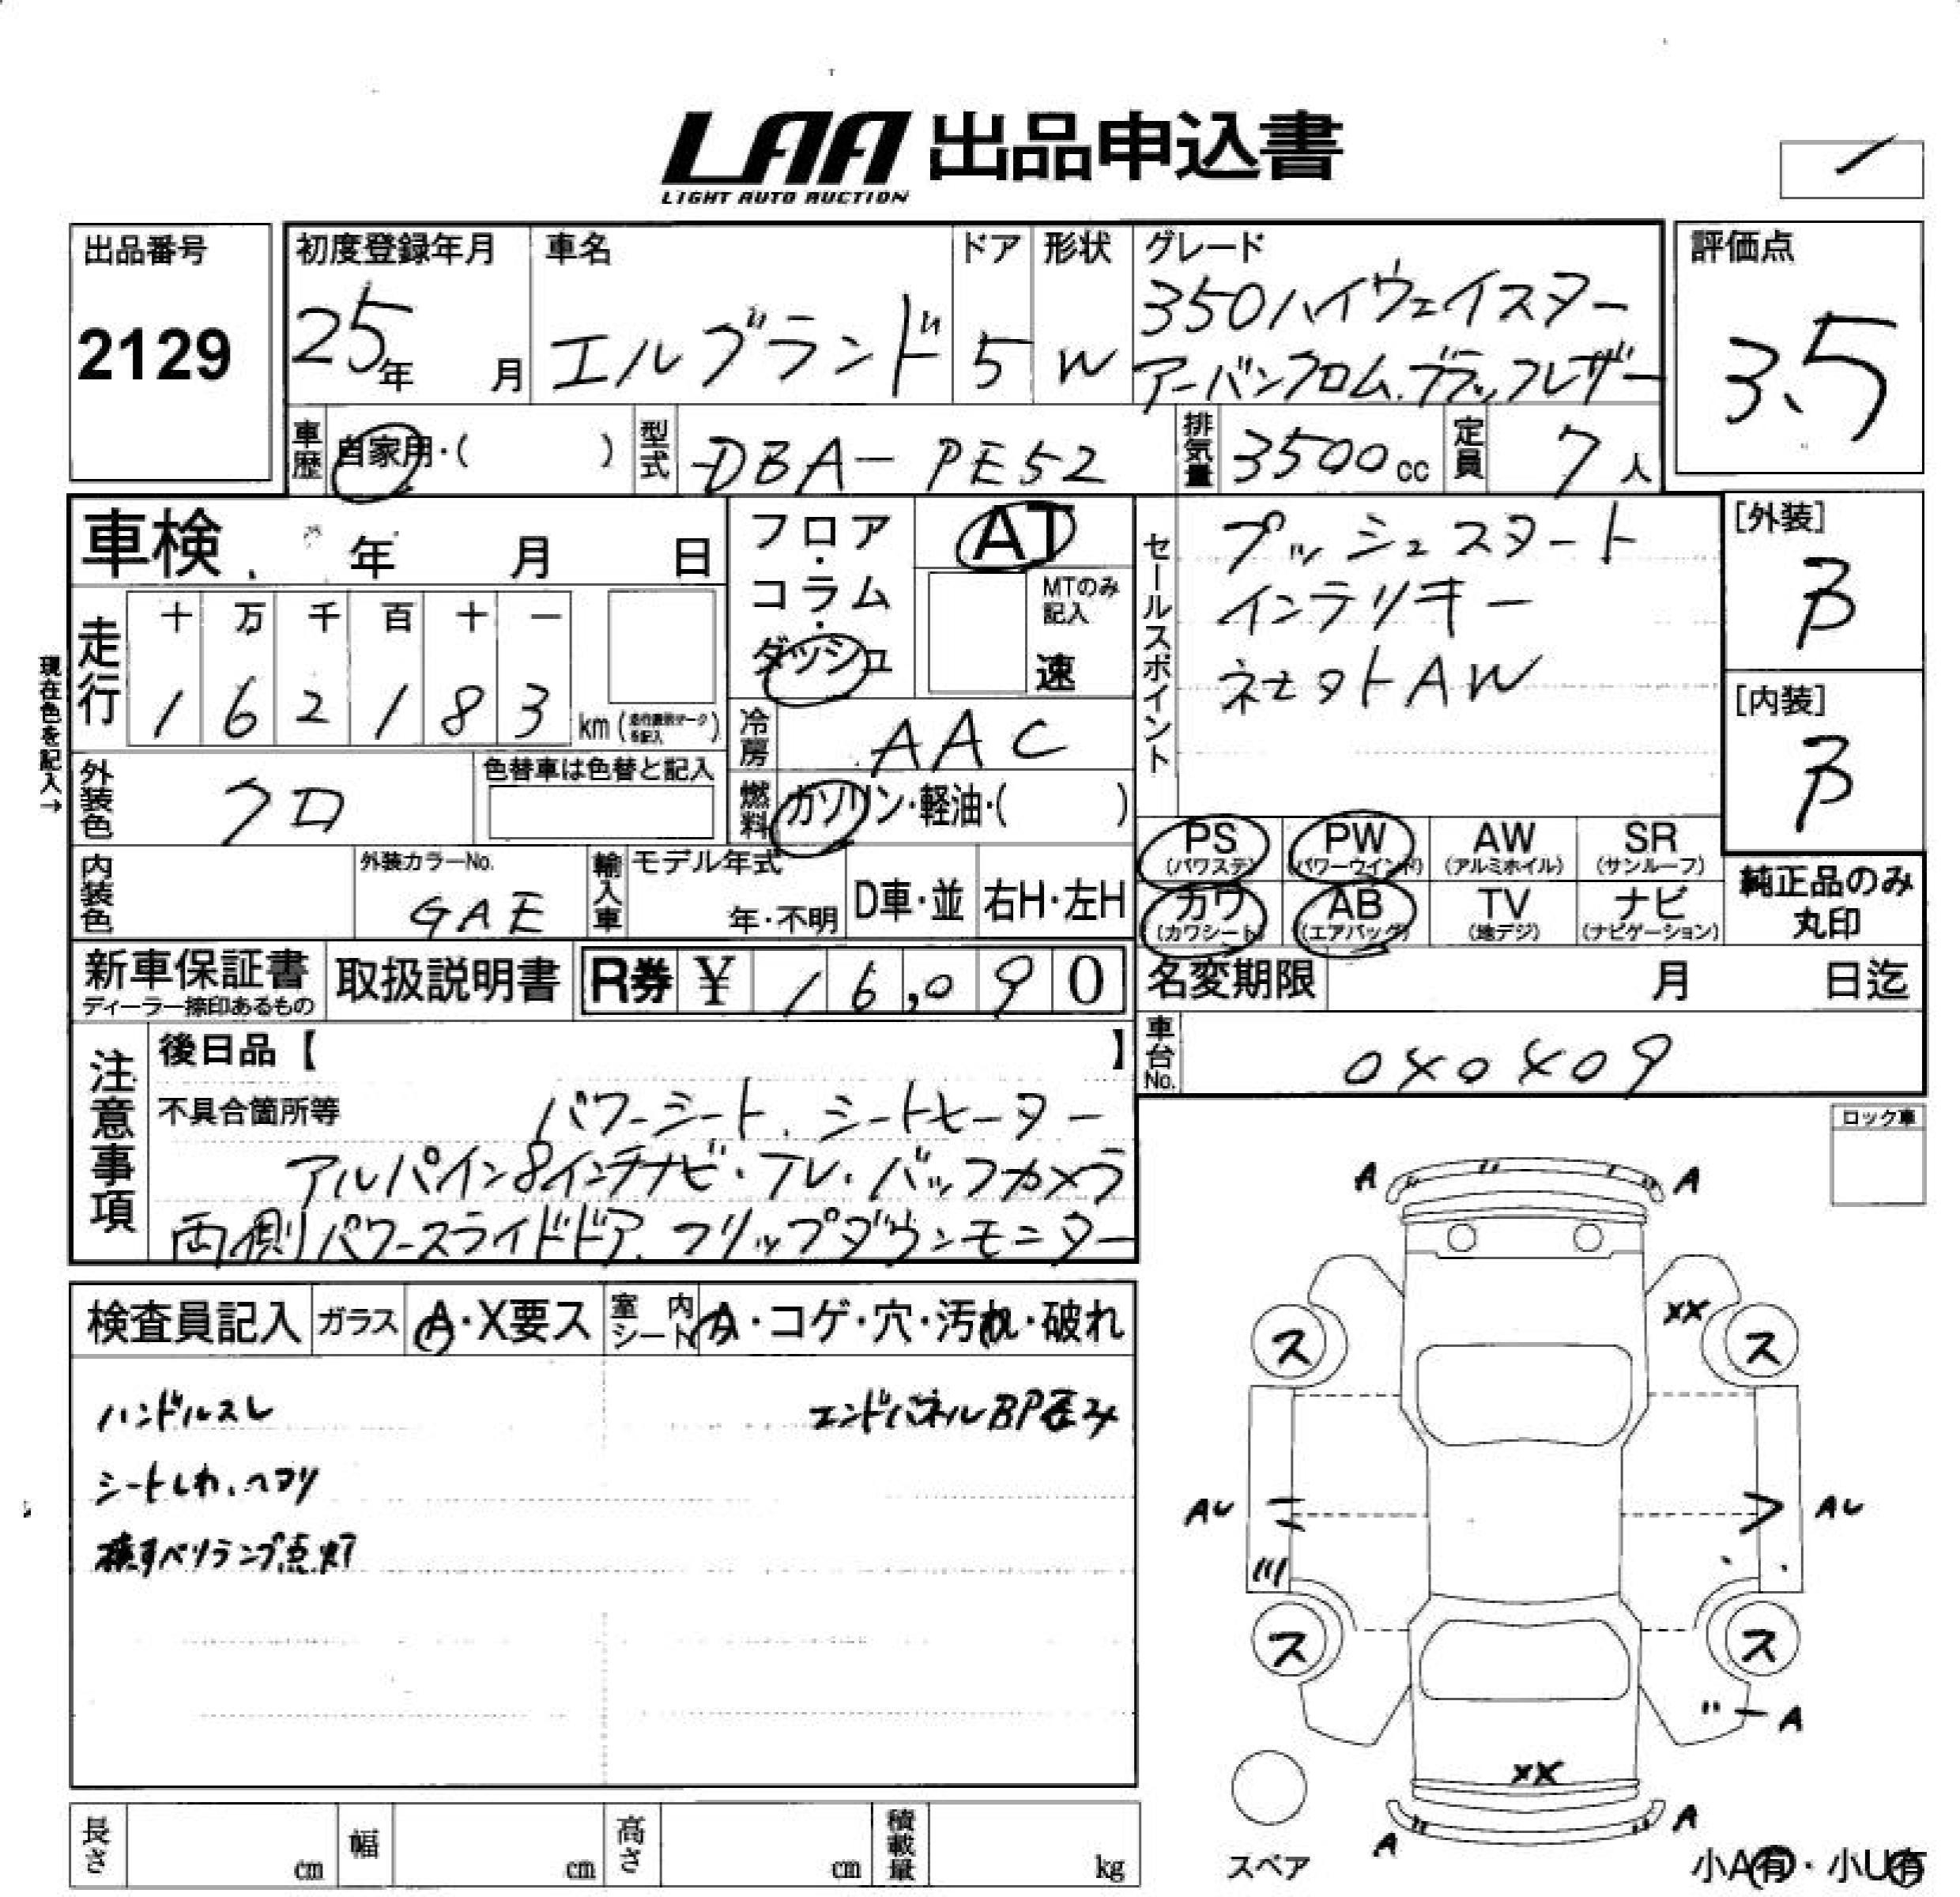 LAA 出品申込書
LIGHT AUTO AUCTION
出品番号
2129
初度登録年月
25年 月
車名
エルグランド
ドア
5
形状
W
グレード
350ハイウェイスター
アーバンクロム.ブラックレザー
評価点
3.5
車歴
自家用・( )
型式
DBA-PE52
排気量
3500cc
定員
7人
車検 年 月 日
走行
十 万 千 百 十 一
1 6 2 1 8 3 km
現在色を記入→
フロア・コラム・ダッシュ
AT
MTのみ記入
速
冷房
AAC
燃料
ガソリン・軽油・( )
セールスポイント
プッシュスタート
インテリキー
ネセットAW
[外装]
B
[内装]
B
外装色
クロ
色替車は色替と記入
内装色
外装カラーNo.
GAE
輸入車
モデル年式
年・不明
D車・並
右H・左H
PS (パワステ)
PW (パワーウインド)
AW (アルミホイル)
SR (サンルーフ)
カワ (カワシート)
AB (エアバッグ)
TV (地デジ)
ナビ (ナビゲーション)
純正品のみ
丸印
新車保証書
ディーラー捺印あるもの
取扱説明書
R券 ¥ 16,090
名変期限 月 日迄
車台No.
040409
注意事項
後日品【 】
不具合箇所等
パワーシート.シートヒーター
アルパイン8インチナビ・テレ・バックカメラ
両側パワースライドドア.フリップダウンモニター
ロック車
検査員記入
ガラス
A・X要ス
室内シート
A・コゲ・穴・汚れ・破れ
ハンドルスレ
エンドパネルBP歪み
シートしわ.ヘコリ
横すべりランプ点灯
A A
XX
ス ス
AU AU
ス ス
A
XX
A A
スペア
小A有・小U有
長さ cm
幅 cm
高さ cm
積載量 kg